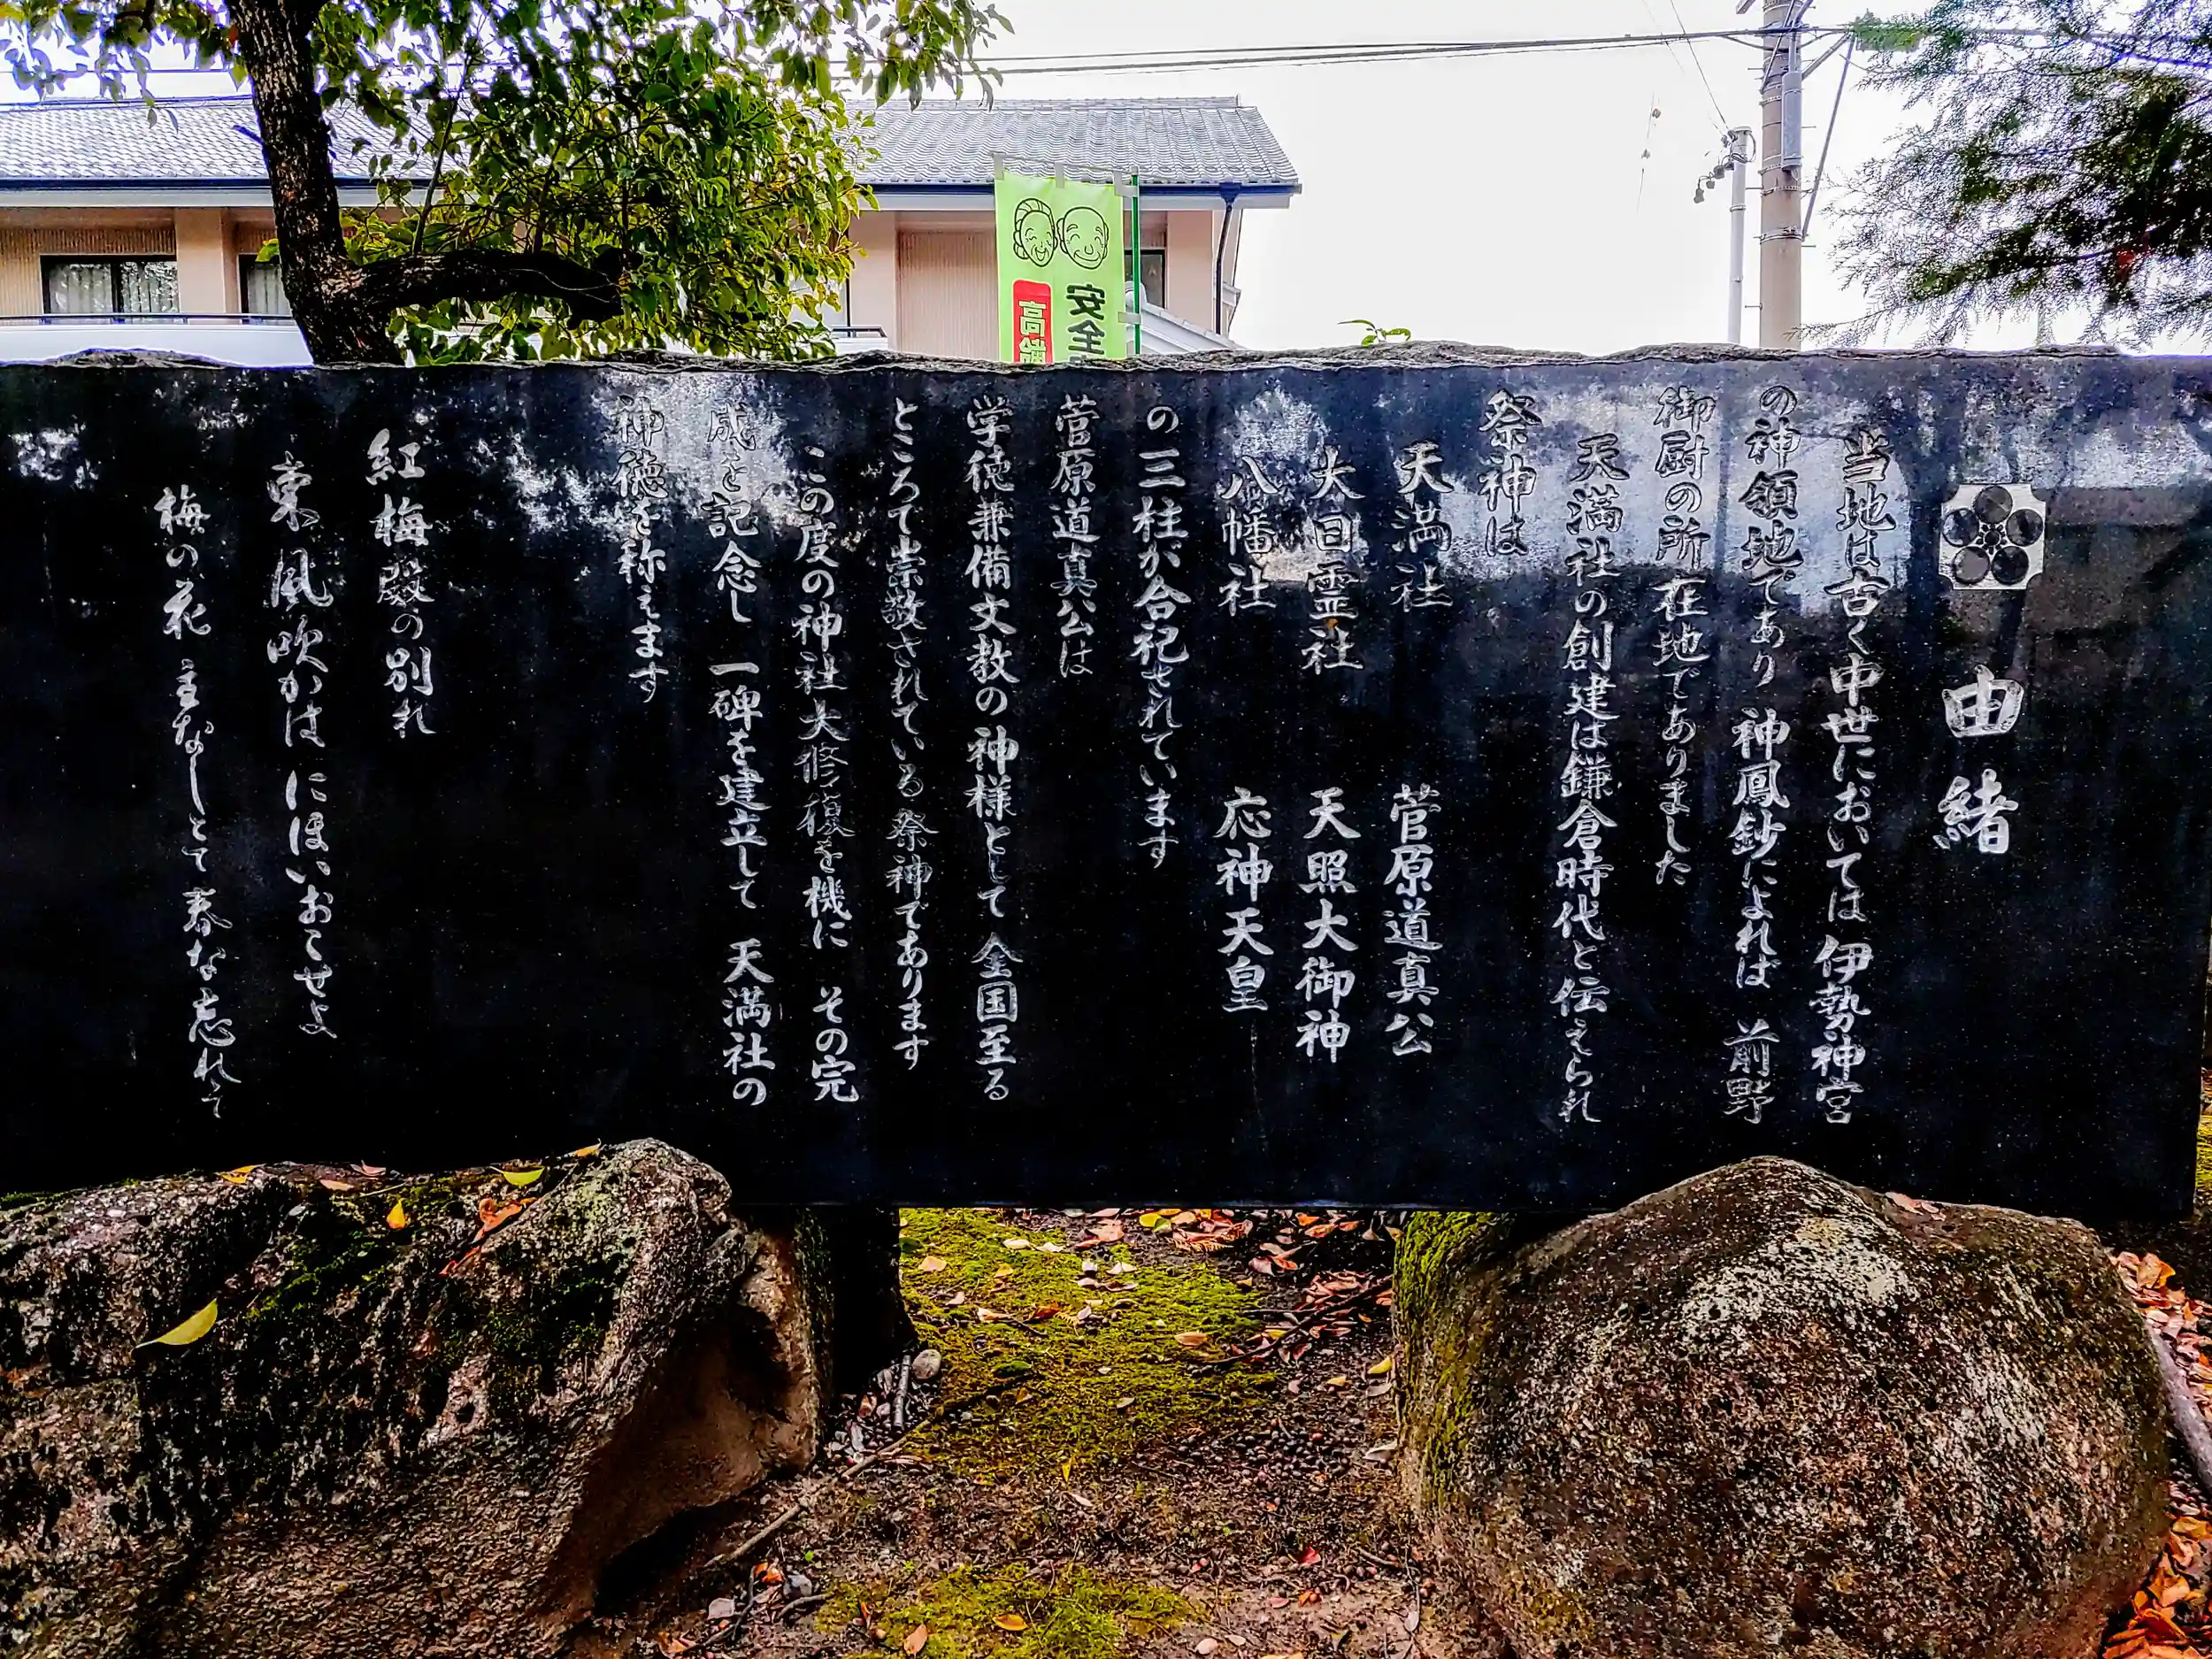 由緒
当地は古く中世においては 伊勢神宮
の神領地であり 神鳳鈔によれは 前野
御厨の所在地でありました
天満社の創建は鎌倉時代と伝えられ
祭神は
天満社 菅原道真公
大日霊社 天照大御神
八幡社 応神天皇
の三柱が合祀されています
菅原道真公は
学徳兼備文教の神様として 全国至る
ところて崇敬されている 祭神であります
この度の神社大修復を機に その完
成を記念し 一碑を建立して 天満社の
神徳を称えます
紅梅殿の別れ
東風吹かは にほいおこせよ
梅の花 主なしとて 春な忘れそ
安全
高齢